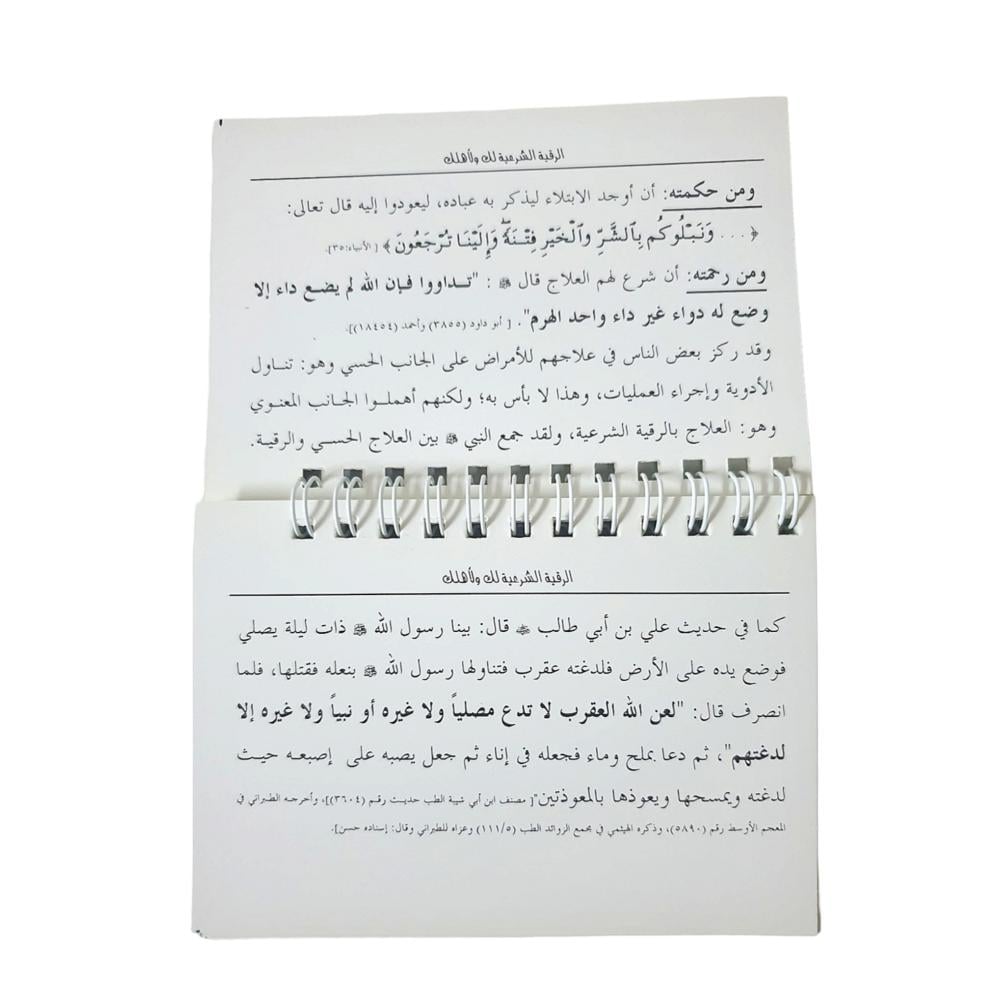 الرقية الشرعية لك ولأهلك
ومن حكمته: أن أوجد الابتلاء ليذكر به عباده، ليعودوا إليه قال تعالى:
﴿... وَنَبْلُوكُم بِٱلشَّرِّ وَٱلْخَيْرِ فِتْنَةً ۖ وَإِلَيْنَا تُرْجَعُونَ﴾ [الأنبياء:٣٥].
ومن رحمته: أن شرع لهم العلاج قال ﷺ : "تـداووا فإن الله لم يضع داء إلا
وضع له دواء غير داء واحد الهرم". [أبو داود (٣٨٥٥) وأحمد (١٨٤٥٤)].
وقد ركز بعض الناس في علاجهم للأمراض على الجانب الحسي وهو: تناول
الأدوية وإجراء العمليات، وهذا لا بأس به؛ ولكنهم أهملوا الجانب المعنوي
وهو: العلاج بالرقية الشرعية، ولقد جمع النبي ﷺ بين العلاج الحسي والرقية.
الرقية الشرعية لك ولأهلك
كما في حديث علي بن أبي طالب قال: بينا رسول الله ﷺ ذات ليلة يصلي
فوضع يده على الأرض فلدغته عقرب فتناولها رسول الله ﷺ بنعله فقتلها، فلما
انصرف قال: "لعن الله العقرب لا تدع مصلياً ولا غيره أو نبياً ولا غيره إلا
لدغتهم"، ثم دعا بملح وماء فجعله في إناء ثم جعل يصبه على إصبعه حيث
لدغته ويمسحها ويعوذها بالمعوذتين"[مصنف ابن أبي شيبة الطب حديث رقم (٣٦٠٤)]، وأخرجه الطبراني في
المعجم الأوسط رقم (٥٨٩٠)، وذكره الهيثمي في مجمع الزوائد الطب (١١١/٥) وعزاه للطبراني وقال: إسناده حسن].